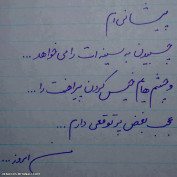 پیشانی ام
چسبیدن به سینه ات را می خواهد...
و چشم هایم خیس کردن پیراهنت را...
عجب بغض پر توقعی دارم...
من امروز...